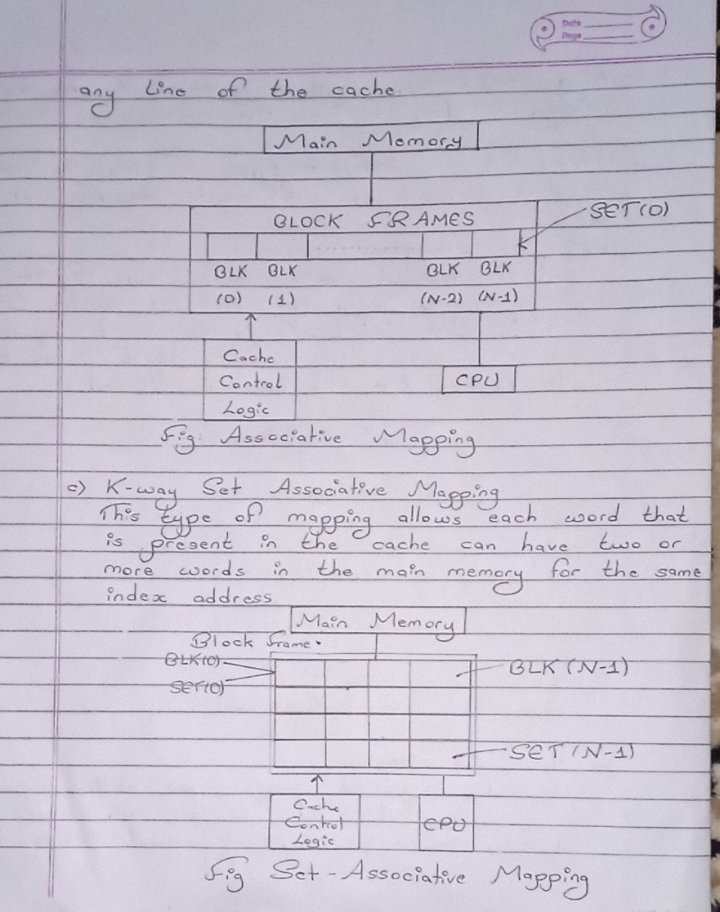 Date
Page
any line of the cache
Main Memory
BLOCK FRAMES
SET(0)
BLK BLK BLK BLK
(0) (1) (N-2) (N-1)
Cache
Control
Logic
CPU
Fig: Associative Mapping
c) K-way Set Associative Mapping
This type of mapping allows each word that
is present in the cache can have two or
more words in the main memory for the same
index address
Main Memory
Block frame.
BLK(0)
SET(0)
BLK (N-1)
SET (N-1)
Cache
Control
Logic
CPU
Fig Set-Associative Mapping